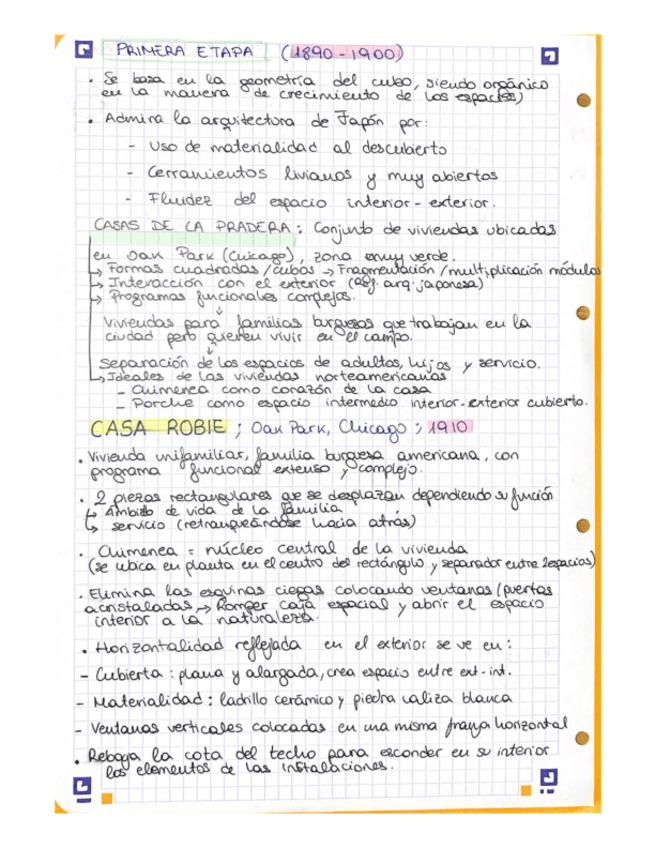 PRIMERA ETAPA (1890-1900)
• Se basa en la geometría del cubo, siendo orgánico
en la manera de crecimiento de los espacios)
• Admira la arquitectura de Japón por:
- Uso de materialidad al descubierto
- Cerramientos livianos y muy abiertos
- Fluidez del espacio interior-exterior.
CASAS DE LA PRADERA: Conjunto de viviendas ubicadas
en Oak Park (Chicago), zona muy verde.
↳ Formas cuadradas/cubos → Fragmentación/multiplicación módulos
↳ Interacción con el exterior (Ref. arq. japonesa)
↳ Programas funcionales complejos.
↓
Viviendas para familias burguesas que trabajan en la
ciudad pero quieren vivir en el campo.
↓
Separación de los espacios de adultos, hijos y servicio.
↳ Ideales de las viviendas norteamericanas
- Chimenea como corazón de la casa
- Porche como espacio intermedio interior-exterior cubierto.
CASA ROBIE; Oak Park, Chicago; 1910
• Vivienda unifamiliar, familia burguesa americana, con
programa funcional extenso y complejo.
• 2 piezas rectangulares que se desplazan dependiendo su función
↳ Ámbito de vida de la familia
↳ servicio (retranqueándose hacia atrás)
• Chimenea = núcleo central de la vivienda
(se ubica en planta en el centro del rectángulo y separador entre 2 espacios)
• Elimina las esquinas ciegas colocando ventanas/puertas
acristaladas → Romper caja espacial y abrir el espacio
interior a la naturaleza.
• Horizontalidad reflejada en el exterior se ve en:
- Cubierta: plana y alargada, crea espacio entre ext-int.
- Materialidad: ladrillo cerámico y piedra caliza blanca
- Ventanas verticales colocadas en una misma franja horizontal
• Rebaja la cota del techo para esconder en su interior
los elementos de las instalaciones.